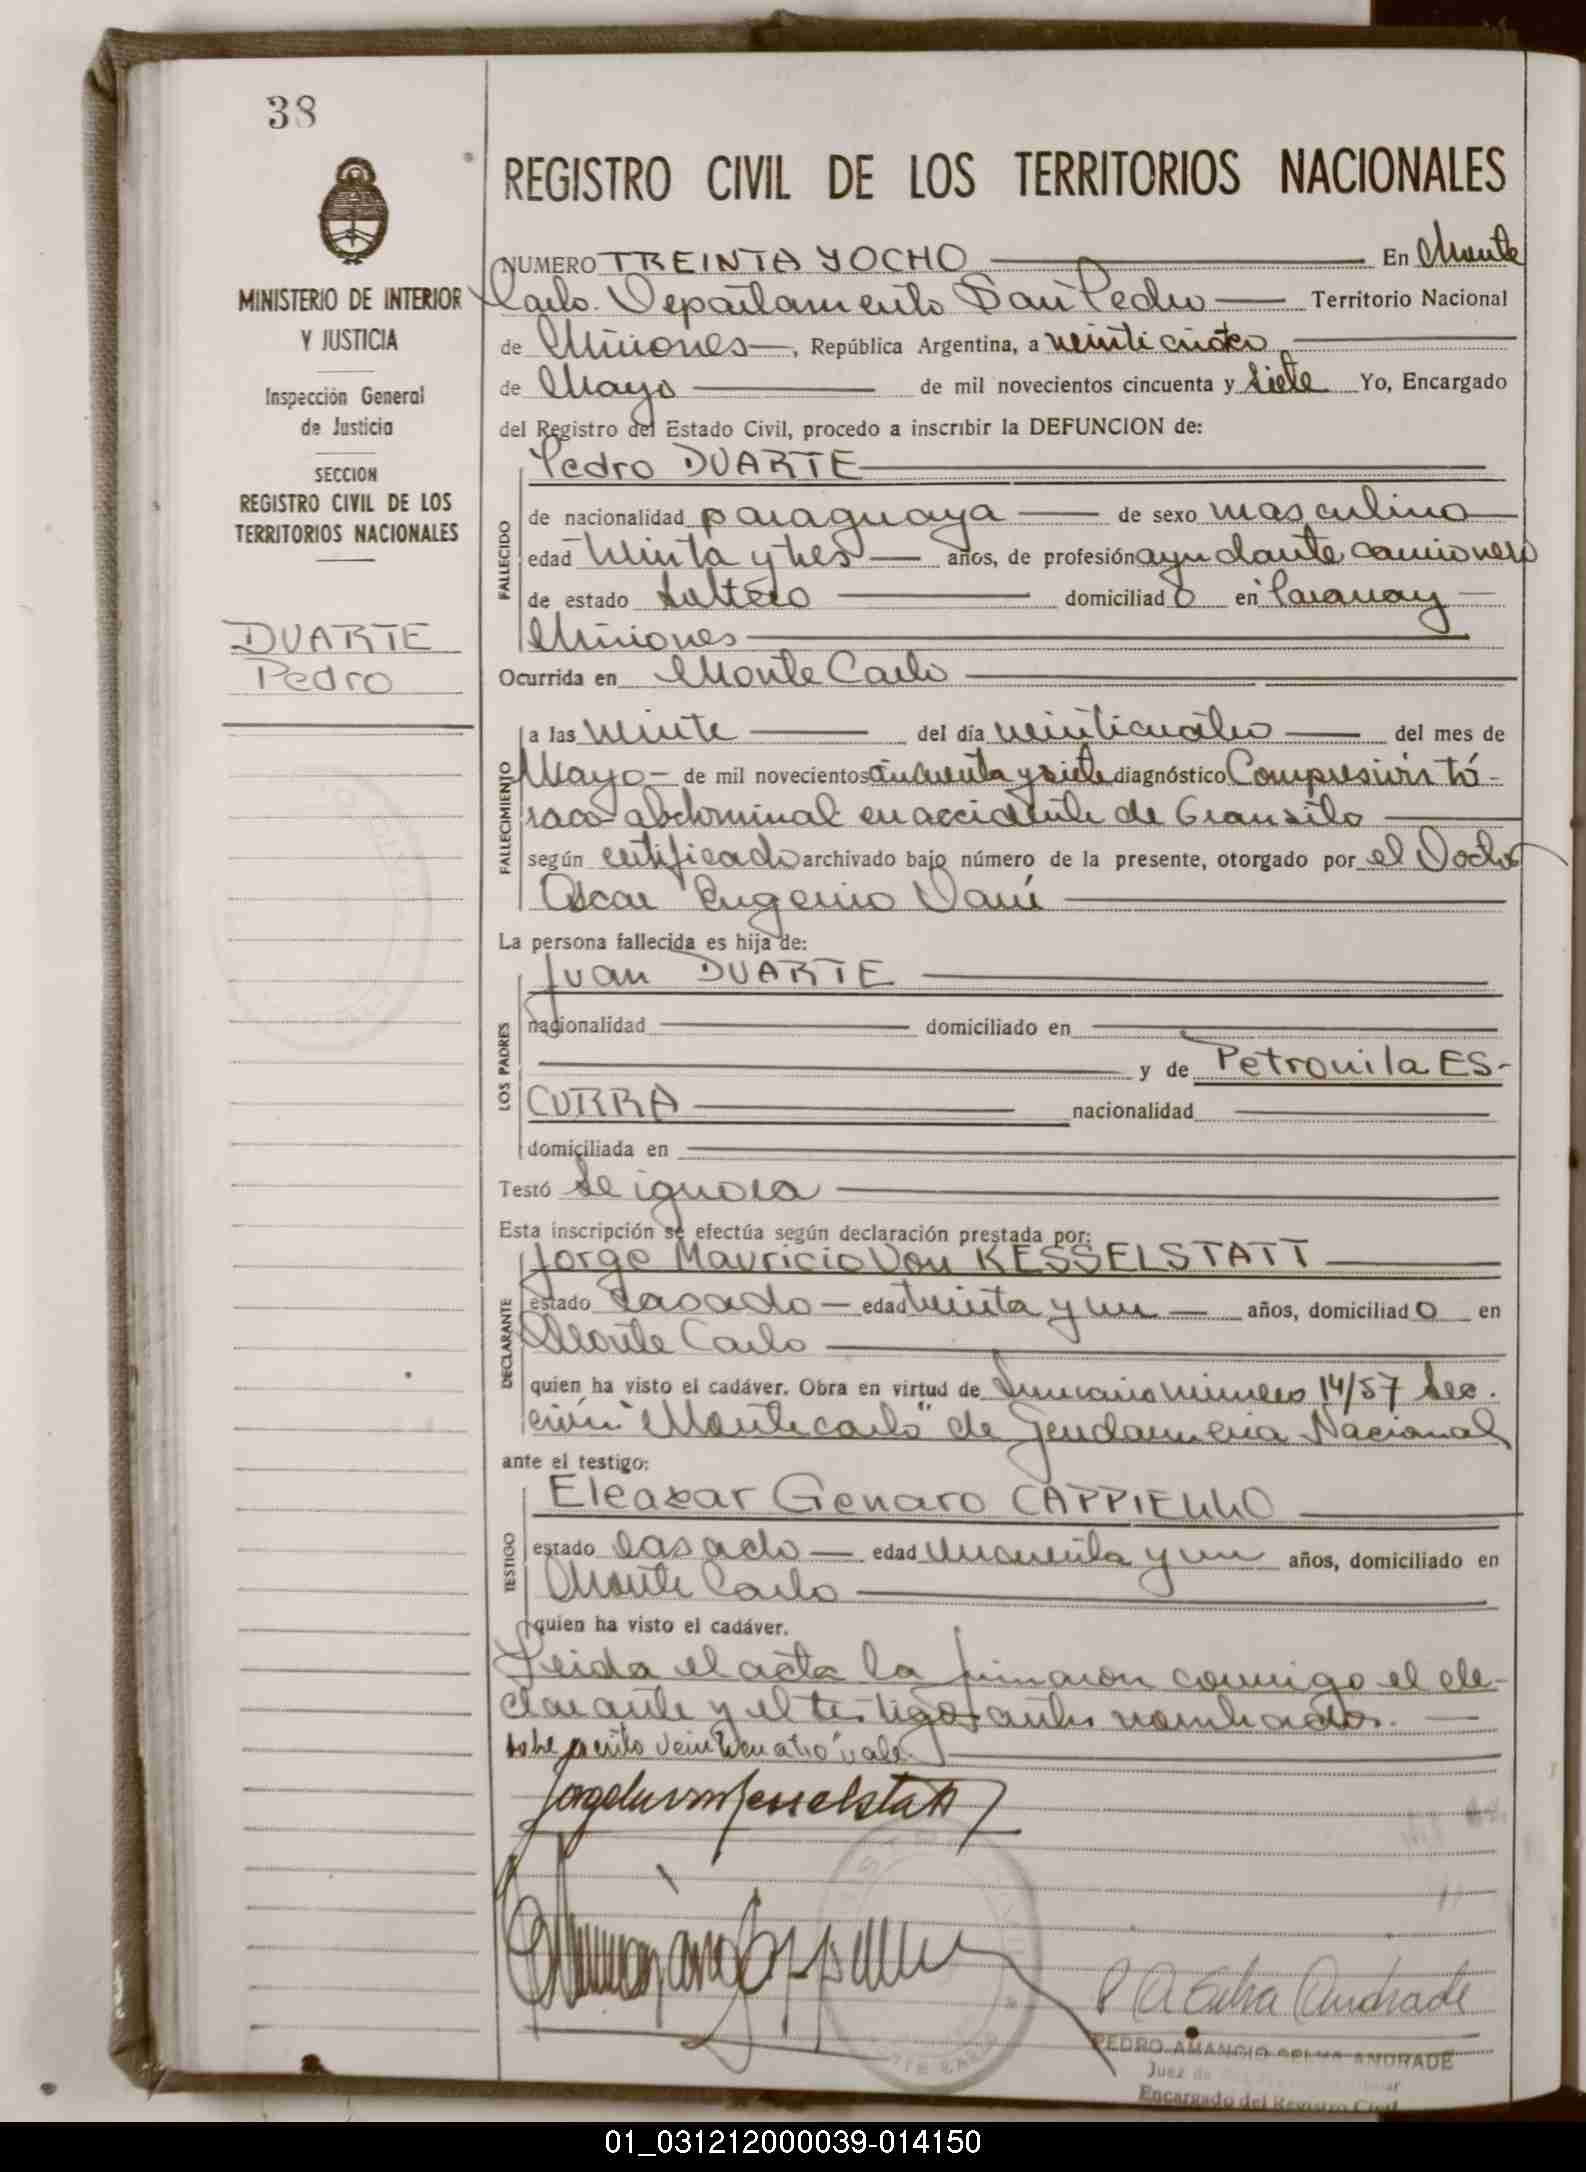 38
MINISTERIO DE INTERIOR
Y JUSTICIA
Inspección General
de Justicia
SECCION
REGISTRO CIVIL DE LOS
TERRITORIOS NACIONALES
DUARTE
Pedro
REGISTRO CIVIL DE LOS TERRITORIOS NACIONALES
NUMERO TREINTA Y OCHO En Monte
Carlo. Departamento San Pedro Territorio Nacional
de Misiones, República Argentina, a
de Mayo de mil novecientos cincuenta y siete Yo, Encargado
del Registro del Estado Civil, procedo a inscribir la DEFUNCION de:
Pedro DUARTE
FALLECIDO
de nacionalidad paraguaya de sexo masculino
edad treinta y tres años, de profesión ayudante camionero
de estado soltero domiciliado en
Misiones
Ocurrida en Monte Carlo
FALLECIMIENTO
a las veinte del día veinticuatro del mes de
Mayo de mil novecientos cincuenta y siete diagnóstico Compresión tó-
raco abdominal en accidente de transito
según certificado archivado bajo número de la presente, otorgado por el Doctor
Oscar Eugenio
La persona fallecida es hija de:
LOS PADRES
Juan DUARTE
nacionalidad domiciliado en
y de Petronila ES-
CURRA nacionalidad
domiciliada en
Testó Se ignora
Esta inscripción se efectúa según declaración prestada por:
DECLARANTE
Jorge Mauricio Von KESSELSTATT
estado casado edad treinta y un años, domiciliado en
Monte Carlo
quien ha visto el cadáver. Obra en virtud de Sumario número 14/57 Sec-
ción "Montecarlo" de Gendarmeria Nacional
ante el testigo:
TESTIGO
Eleazar Genaro CAPPIELLO
estado casado edad cuarenta y un años, domiciliado en
Monte Carlo
quien ha visto el cadáver.
Leida el acta la firmaron conmigo el de-
clarante y el testigo antes nombrados.
sobre escrito veinticuatro vale
PEDRO AMANCIO SELVA ANDRADE
Juez de
Encargado del Registro Civil
01_031212000039-014150